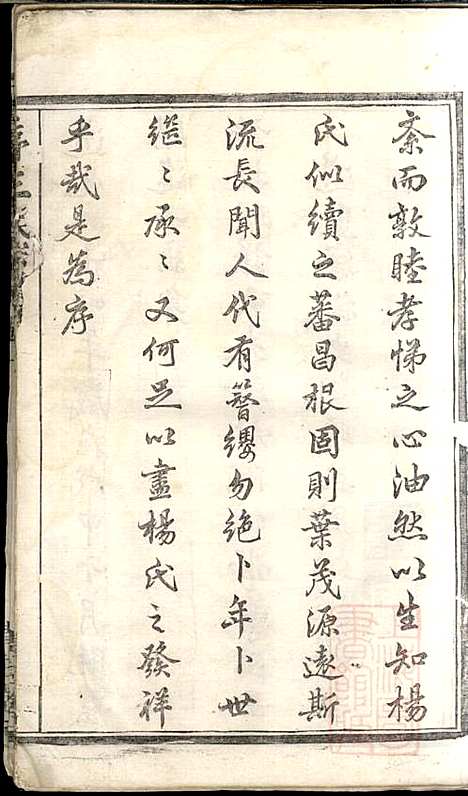 紊而敦睦孝悌之心油然以生知楊
氏似續之蕃昌根固則葉茂源遠斯
流長聞人代有簪纓勿絕卜年卜世
繼〻承〻又何足以盡楊氏之發祥
乎哉是為序